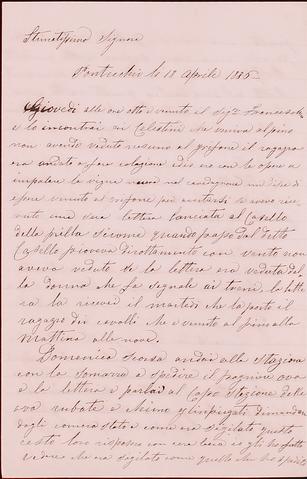 Stimatissimo Signore
Pontecchio li 18 Aprile 1886
Giovedi alle ore otto è venuto il Sigr Francesco
e lo incontrai in Celestini che veniva al pino
non avendo veduto nessuno al prefone il ragazzo
era andato a fare colazione ed io ero con le opere a
impalare la vigna nel
essere venuto al prefone poi sentirsi se avevo rice
vuto una sua lettera lanciata al Casello
della quando passo dal detto
Casello pioveva dirottamente con vento non
aveva veduto se la lettera era veduta dal
la donna che fa segnale ai treni. la lette
ra la ricevei il martedì che la portò il
ragazzo dei cavalli che è venuto al pino alla
mattina alle nove.
Domenica scorsa andai alla stazione
con la somara a spedire il paginone ova
e la lettera e parlai al Capo Stazione delle
ova rubate e chimo gl'impiegati dimandan
dogli come era stato e come era sigilato questo
cesto loro risposero con cera lacca io gli ho fatto
vedere che era sigilato come quello che ho spedito